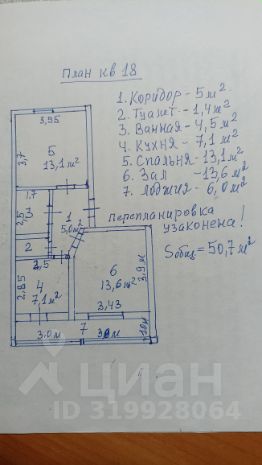 План кв 18
1. Коридор - 5 м²
2. Туалет - 1,4 м²
3. Ванная - 4,5 м²
4. Кухня - 7,1 м²
5. Спальня - 13,1 м²
6. Зал - 13,6 м²
7. Лоджия - 6,0 м²
Перепланировка
узаконена!
Sобщ = 50,7 м²
3,95
3,7
5
13,1 м²
1.7
2,5
3
1
5,0 м²
2
2,5
4
7,1 м²
2,85
6
13,6 м²
3,9 м
3,43
3.0 м
7
циан
ID 319928064